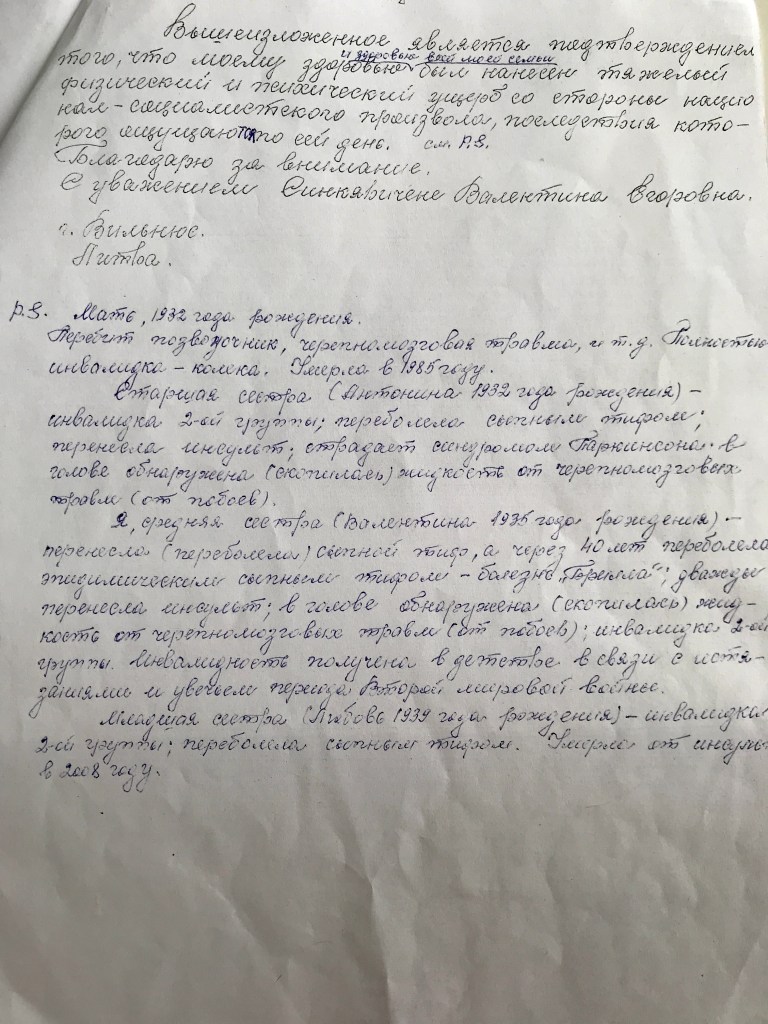 Вышеизложенное является подтверждением
того, что моему здоровью и здоровью всей моей семьи был нанесен тяжелый
физический и психический ущерб со стороны нацио
нал-социалистского произвола, последствия кото-
рого ощущаются по сей день. см. P.S.
Благодарю за внимание.
С уважением Синкявичене Валентина Егоровна.
г. Вильнюс.
Литва.
P.S. Мать, 1932 года рождения.
Перебит позвоночник, черепномозговая травма, и т.д. Полностью
инвалидка - калека. Умерла в 1985 году.
Старшая сестра (Антонина 1932 года рождения) -
инвалидка 2-ой группы; переболела сыпным тифом;
перенесла инсульт; страдает синдромом Паркинсона. в
голове обнаружена (скопилась) жидкость от черепномозговых
травм (от побоев).
Я, средняя сестра (Валентина 1935 года рождения) -
перенесла (переболела) сыпной тиф, а через 40 лет переболела
эпидимическим сыпным тифом - болезнь „Брилла"; дважды
перенесла инсульт; в голове обнаружена (скопилась) жид-
кость от черепномозговых травм (от побоев); инвалидка 2-ой
группы. Инвалидность получена в детстве в связи с истя-
заниями и увечьем периода Второй мировой войны.
Младшая сестра (Любовь 1939 года рождения) - инвалидка
2-ой группы; переболела сыпным тифом. Умерла от инсуль
в 2008 году.